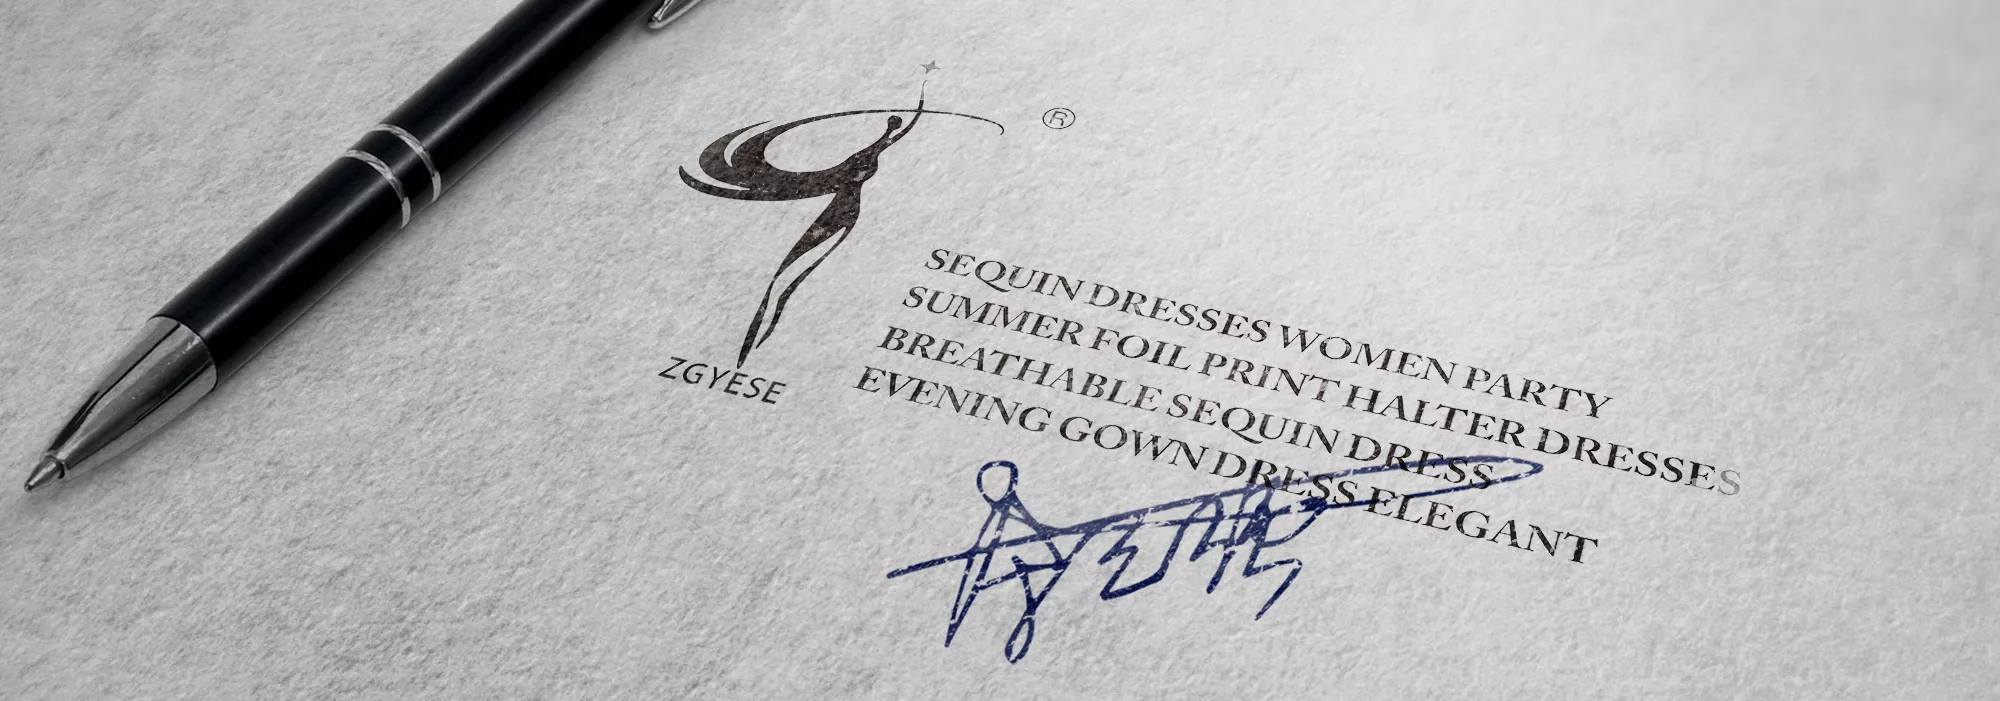 ®
ZGYESE
SEQUIN DRESSES WOMEN PARTY
SUMMER FOIL PRINT HALTER DRESSES
BREATHABLE SEQUIN DRESS
EVENING GOWN DRESS ELEGANT